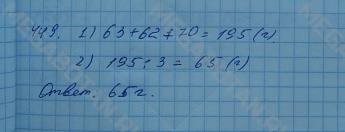 449. 1) 63+62+70=195 (г)
2) 195:3=65 (г)
Ответ. 65 г.